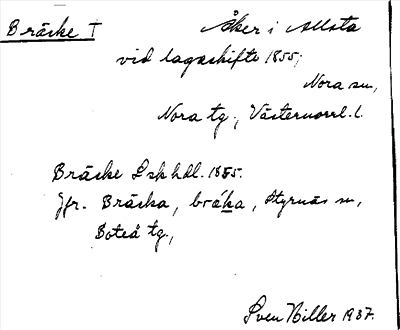 Bräcke T
Åker i Allsta
vid lagaskifte 1855;
Nora sn,
Nora tg., Västernorrl. l.
Bräcke Lsk hdl. 1855.
Jfr. Bräcka, bräka, Styrnäs sn,
Boteå tg.,
Sven Hiller 1937.